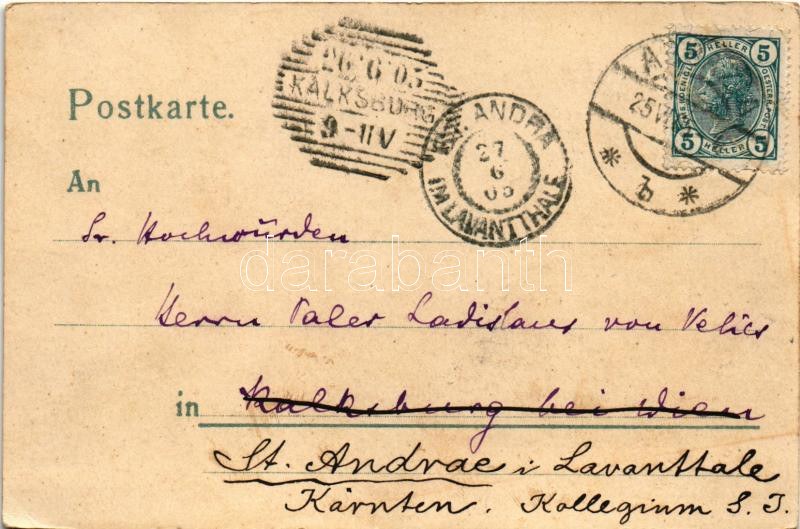 Postkarte.
26 6 05
KALKSBURG
9-11 V
ST. ANDRÄ
27
6
05
IM LAVANTTHALE
25 VI
* b *
5 HELLER 5
5 HELLER 5
An
Sr. Hochwürden
Herrn Pater Ladislaus von Velics
in Kalksburg bei Wien
St. Andrae i Lavanttale
Kärnten. Kollegium S. J.
darabanth